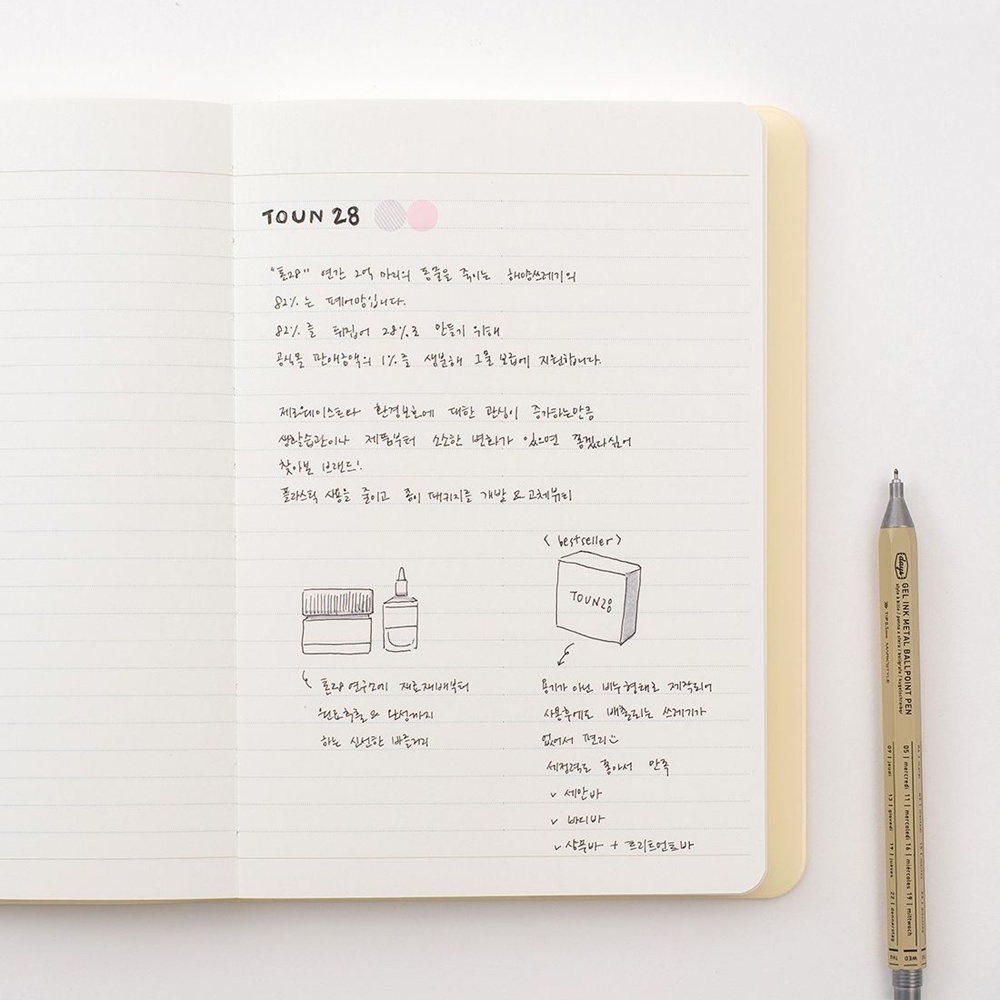 TOUN 28
"톤28" 연간 2억 마리의 동물을 죽이는 해양쓰레기의
82%는 폐어망입니다.
82%를 뒤집어 28%로 만들기 위해
공식몰 판매총액의 1%를 생분해 그물 보급에 지원합니다.
제로웨이스트나 환경보호에 대한 관심이 증가하는만큼
생활습관이나 제품부터 소소한 변화가 있으면 좋겠다싶어
찾아본 브랜드!
플라스틱 사용을 줄이고 종이 패키지를 개발 & 고체뷰티
< bestseller >
TOUN28
톤28 연구소에 재료재배부터
원료추출 & 완성까지
하는 신선한 바를거리
용기가 아닌 비누형태로 제작되어
사용후에도 배출되는 쓰레기가
없어서 편리
세정력도 좋아서 만족
✓ 세안바
✓ 바디바
✓ 샴푸바 + 트리트먼트바
days
GEL INK METAL BALLPOINT PEN
TIP 0.5mm
05 | mercredi 11 | mercoledì 16 | miércoles 19 | mittwoch
09 | jeudi 13 | giovedì 19 | jueves 22 | donnerstag
WED